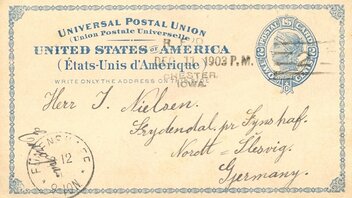 UNIVERSAL POSTAL UNION
(Union Postale Universelle)
UNITED STATES OF AMERICA
(États-Unis d'Amérique)
DEC 11 1903 P.M.
CHESTER,
IOWA.
WRITE ONLY THE ADDRESS ON THIS SIDE
POSTAL CARD
Herr J. Nielsen.
Frydendal pr Synshaf.
Nordt-Slesvig.
Germany.
12